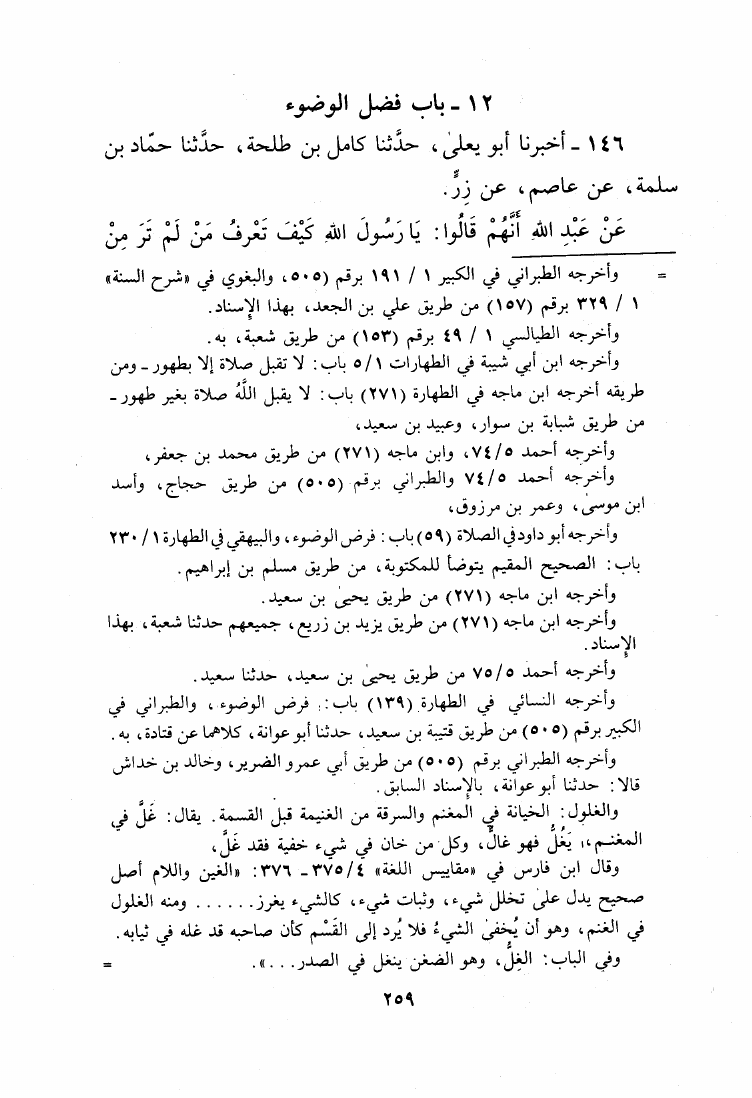 ١٢ - باب فضل الوضوء
١٤٦ - أخبرنا أبو يعلىٰ، حدَّثنا كامل بن طلحة، حدَّثنا حمّاد بن
سلمة، عن عاصم، عن زِرٍّ.
عَنْ عَبْدِ اللهِ أَنَّهُمْ قَالُوا: يَا رَسُولَ اللهِ كَيْفَ تَعْرِفُ مَنْ لَمْ تَرَ مِنْ
= وأخرجه الطبراني في الكبير ١ / ١٩١ برقم (٥٠٥)، والبغوي في «شرح السنة»
١ / ٣٢٩ برقم (١٥٧) من طريق علي بن الجعد، بهذا الإسناد.
وأخرجه الطيالسي ١ / ٤٩ برقم (١٥٣) من طريق شعبة، به.
وأخرجه ابن أبي شيبة في الطهارات ١/٥ باب: لا تقبل صلاة إلا بطهور - ومن
طريقه أخرجه ابن ماجه في الطهارة (٢٧١) باب: لا يقبل اللَّهُ صلاة بغير طهور -
من طريق شبابة بن سوار، وعبيد بن سعيد،
وأخرجه أحمد ٧٤/٥، وابن ماجه (٢٧١) من طريق محمد بن جعفر،
وأخرجه أحمد ٧٤/٥ والطبراني برقم (٥٠٥) من طريق حجاج، وأسد
ابن موسىٰ، وعمر بن مرزوق،
وأخرجه أبو داود في الصلاة (٥٩) باب: فرض الوضوء، والبيهقي في الطهارة ١/ ٢٣٠
باب: الصحيح المقيم يتوضأ للمكتوبة، من طريق مسلم بن إبراهيم.
وأخرجه ابن ماجه (٢٧١) من طريق يحيىٰ بن سعيد.
وأخرجه ابن ماجه (٢٧١) من طريق يزيد بن زريع، جميعهم حدثنا شعبة، بهذا
الإسناد.
وأخرجه أحمد ٧٥/٥ من طريق يحيىٰ بن سعيد، حدثنا سعيد.
وأخرجه النسائي في الطهارة (١٣٩) باب: فرض الوضوء، والطبراني في
الكبير برقم (٥٠٥) من طريق قتيبة بن سعيد، حدثنا أبو عوانة، كلاهما عن قتادة، به.
وأخرجه الطبراني برقم (٥٠٥) من طريق أبي عمرو الضرير، وخالد بن خداش
قالا: حدثنا أبو عوانة، بالإسناد السابق.
والغلول: الخيانة في المغنم والسرقة من الغنيمة قبل القسمة. يقال: غَلَّ في
المغنم، يَغُلُّ فهو غالٌّ، وكل من خان في شيء خفية فقد غَلَّ،
وقال ابن فارس في «مقاييس اللغة» ٣٧٥/٤ - ٣٧٦: «الغين واللام أصل
صحيح يدل علىٰ تخلل شيء، وثبات شيء، كالشيء يغرز...... ومنه الغلول
في الغنم، وهو أن يُخفىٰ الشيءُ فلا يُرد إلى القَسْم كأن صاحبه قد غله في ثيابه.
وفي الباب: الغِلُّ، وهو الضغن ينغل في الصدر...». =
٢٥٩